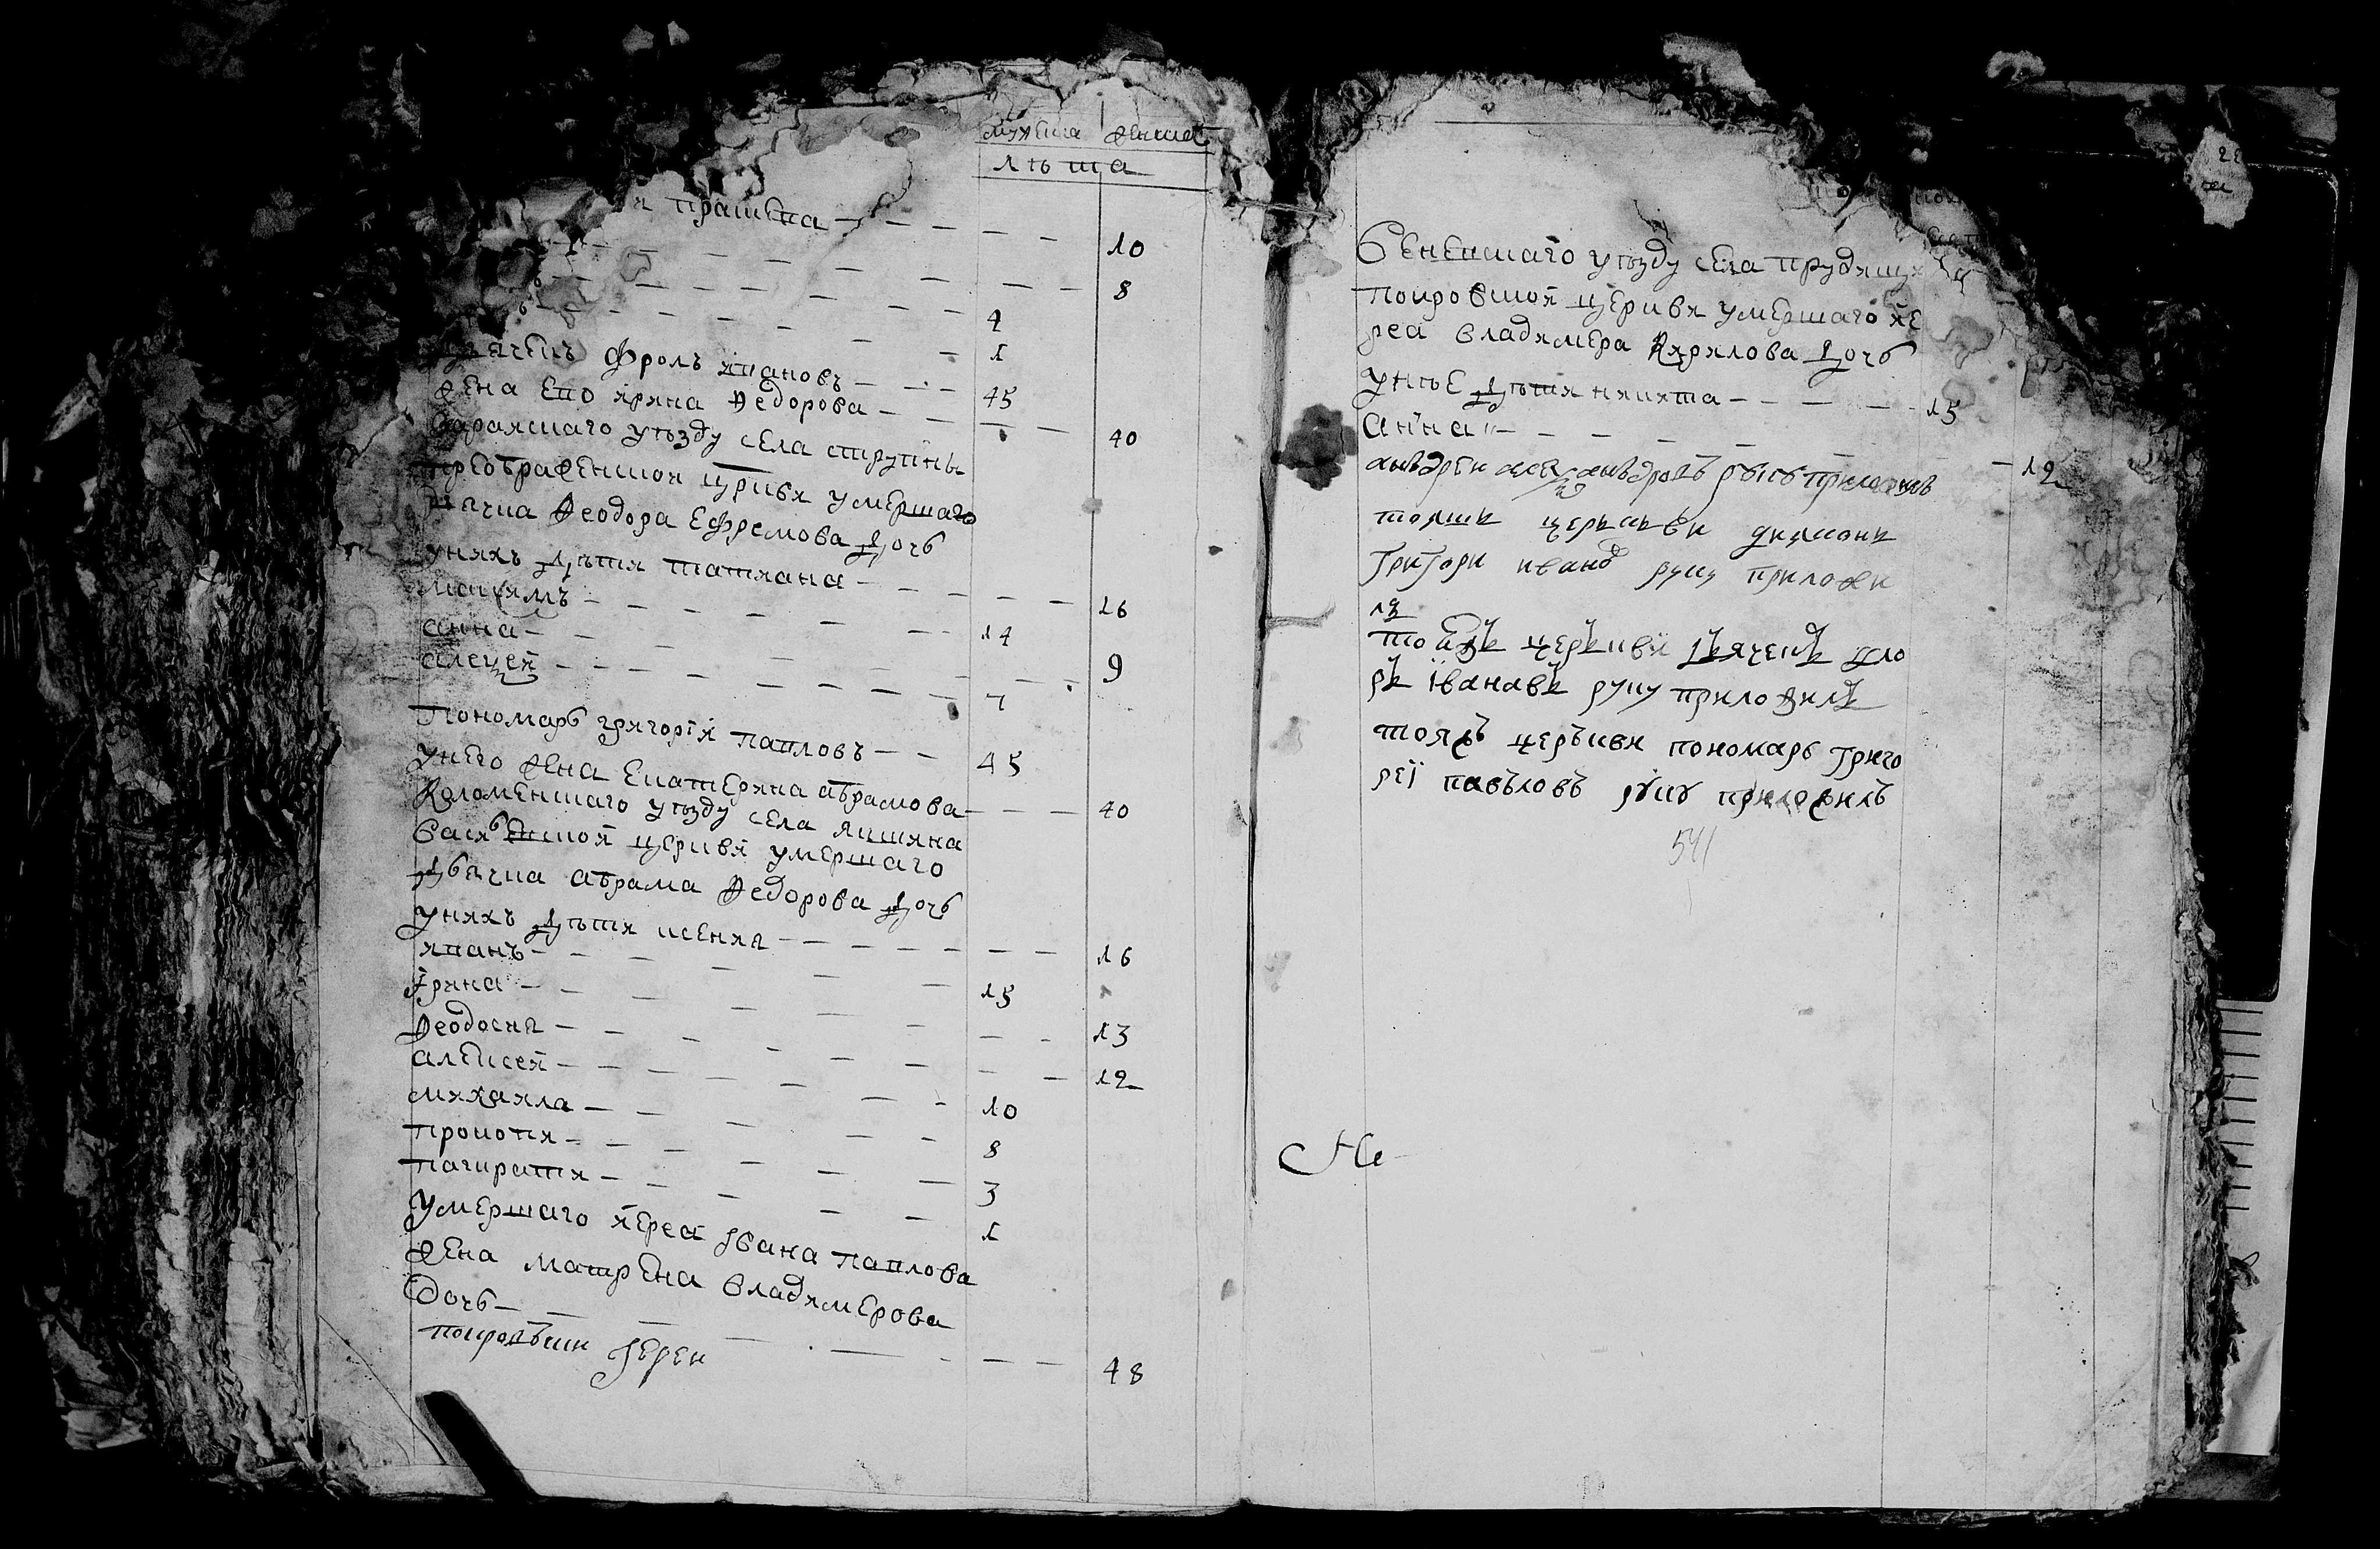 мужеска женска
лета
я прасковя — 10
8
4
1
Дьячекъ фролъ ивановъ — 45
жена ево ирина федорова — 40
Зарайскаго уезду села струпны
преображенской цркви умершаго
дьячка Феодора Ефремова дочь
унихъ дети татиана — 16
максимъ — 14
анна — 9
алексей — 7
Пономарь григорiй павловъ — 45
унего жена Екатерина абрамова — 40
Коломенскаго уезду села
васильевской церкви умершаго
дьячка абрама Федорова дочь
унихъ дети ксения — 16
иванъ — 15
Iрина — 13
Феодосия — 12
алексей — 10
михаила — 8
прокопи — 3
панкрати — 1
Умершаго иереа Iвана павлова
жена матрена владимерова
дочь — 48
покровъски Iереи
веневшаго уезду села прудищъ
покровской церкви умершаго ие
реа владимера Кирилова дочь
унъе дети никита — 15
анна — 12
анъдреи алекъсанъдровъ руку приложилъ
тояжи церкъви дияконъ
григори ивано руку приложи
лъ
тоежъ церъкви дьячекъ фло
ръ iванавъ руку приложилъ
тояжъ церъкви пономарь григо
реi павъловъ руку приложилъ
541